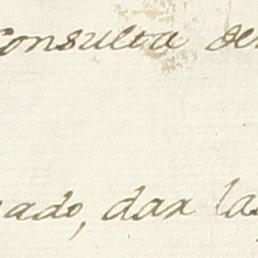 Consulta de
ado, dar las